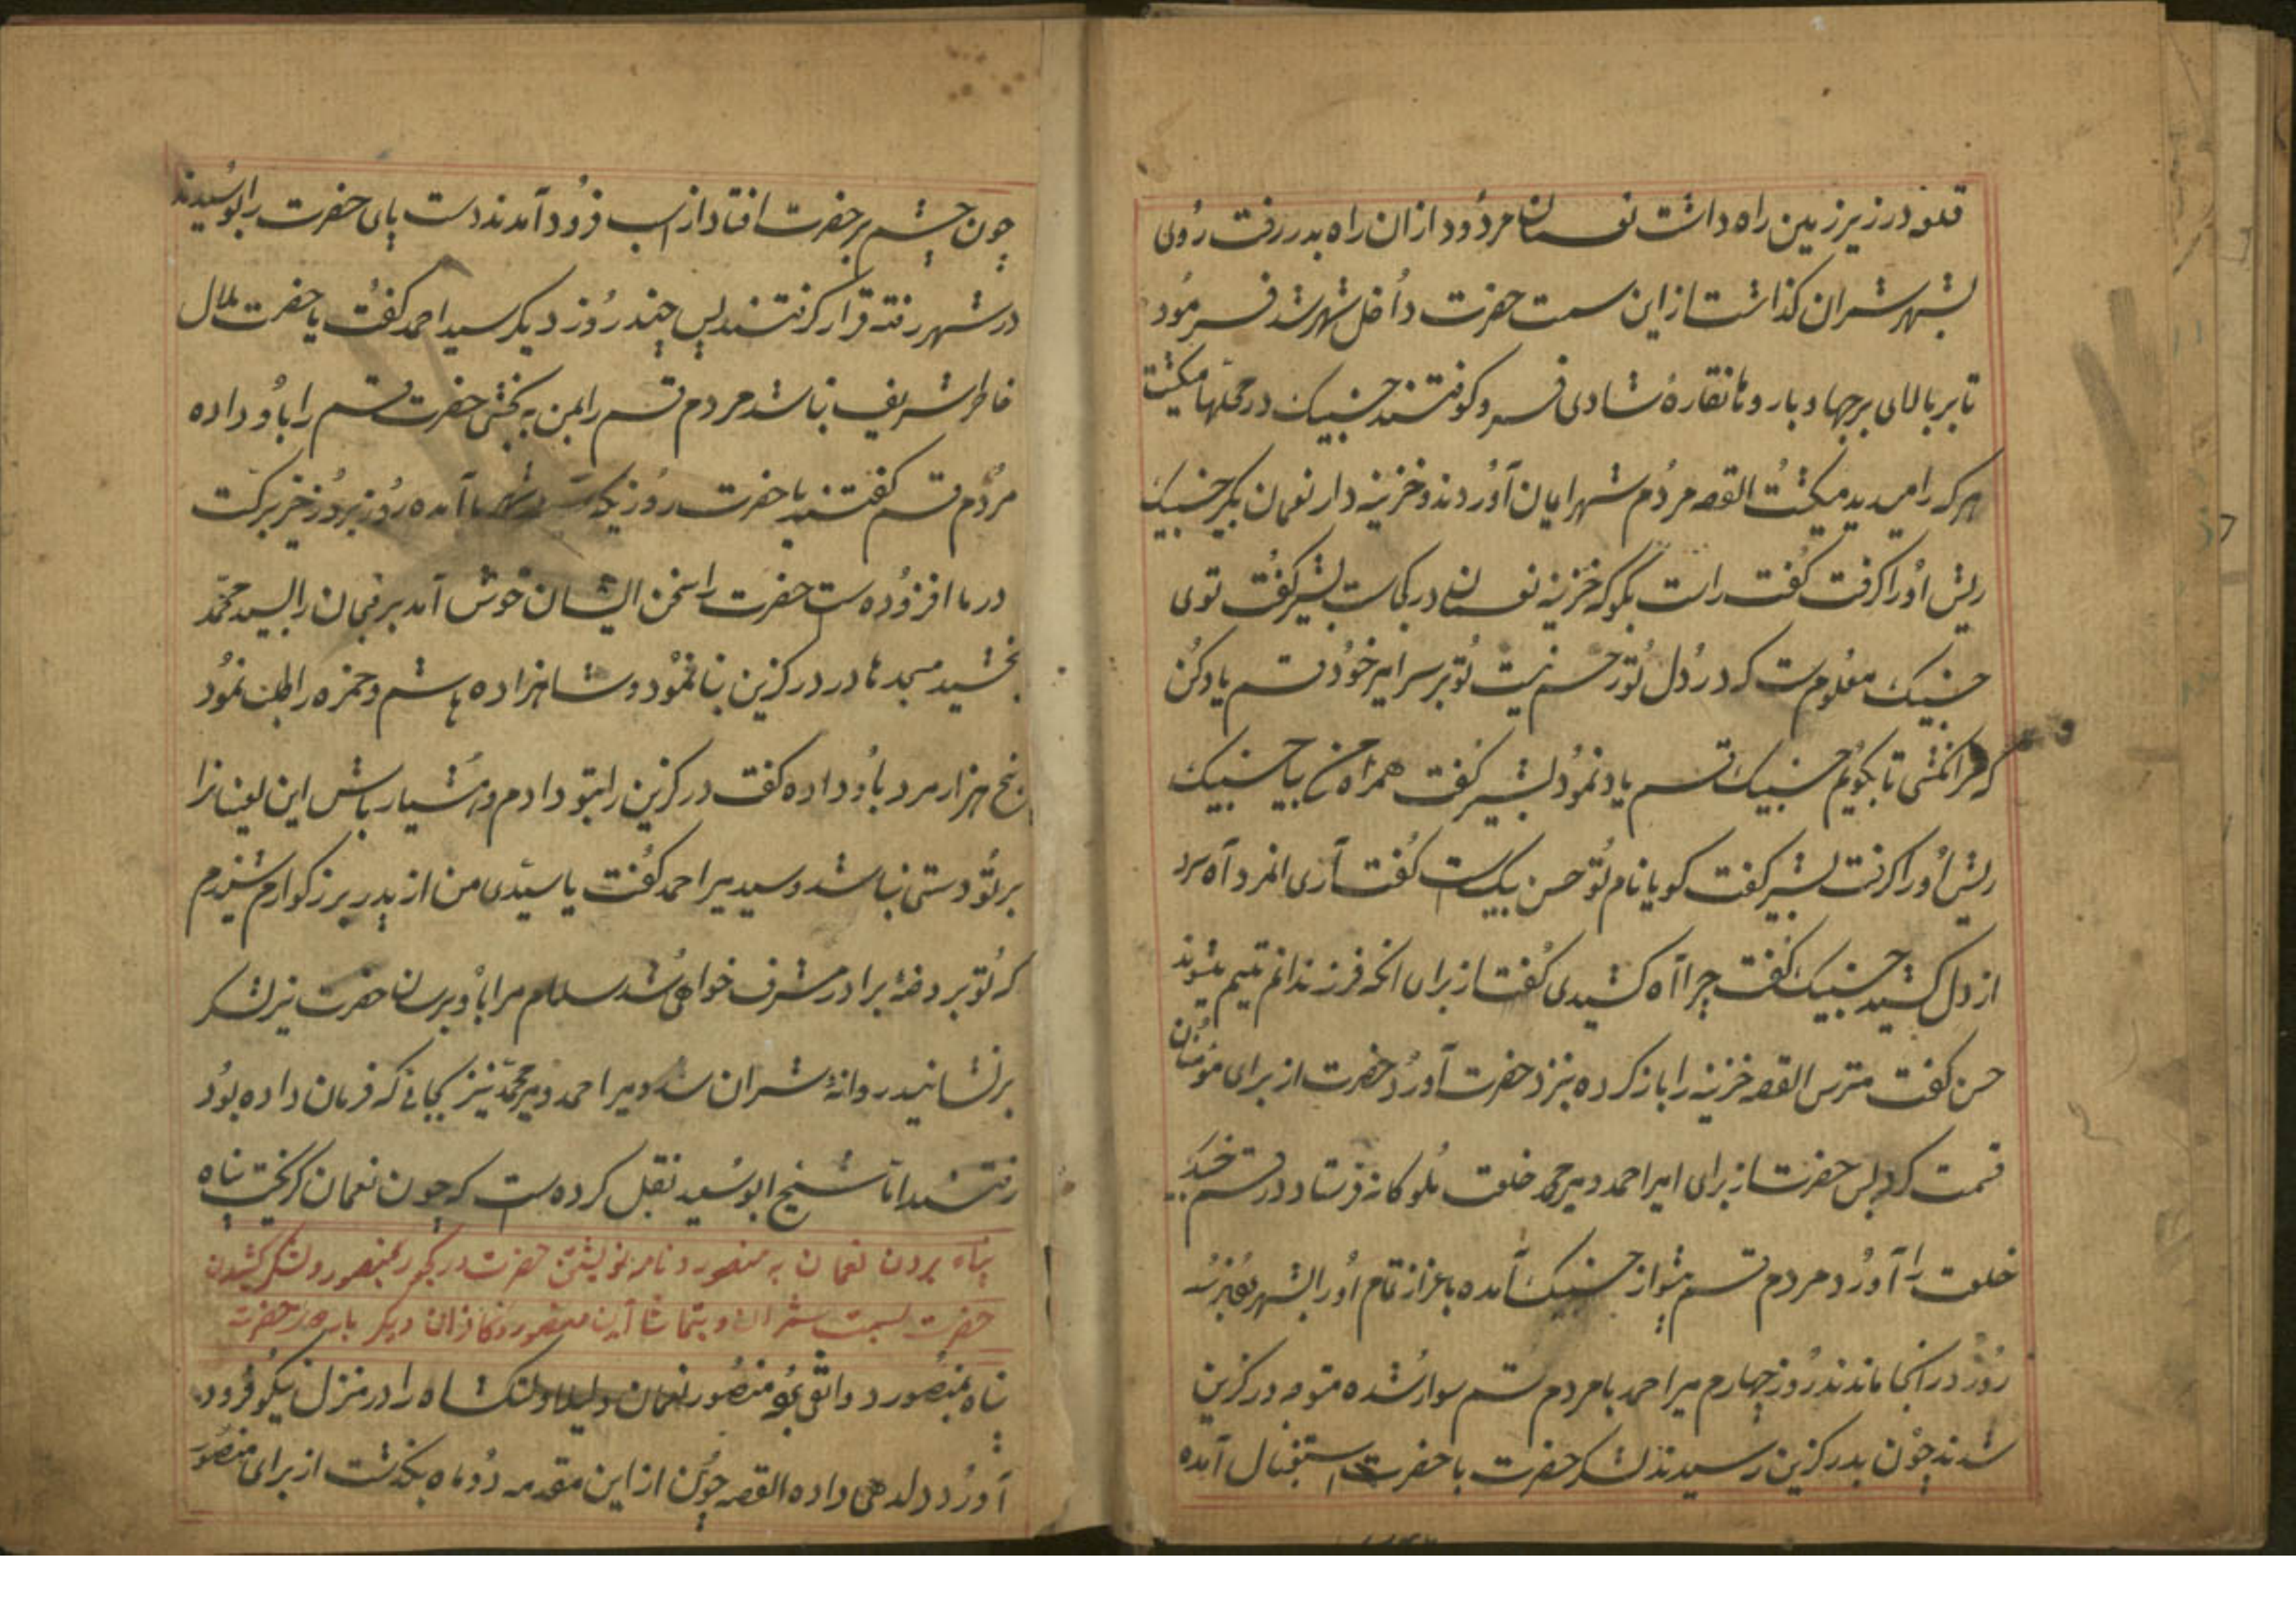 قلعه در زیر زمین راه داشت نعمان مردود ازان راه بدر رفت روی
بشهر شران گذاشت از این سمت حضرت داخل شهر شد فرمود
تا بر بالای برجها و باروها نقاره شادی فرو کوفتند حسنبیک در محلها میکشت
هر که را میدید میکشت القصه مردم شهر ایمان آوردند و خزینه دار نعمان بکیر حسنبیک
ریش اورا گرفت گفت راست بگو که خزینه نعمان در کجاست بشیر گفت توی
حسنبیک معلومست که در دل تو رحم نیست تو بر سر امیر خود قسم یاد کن
که مرا نکشی تا بگویم حسنبیک قسم یاد نمود بشیر گفت همراه من بیا حسنبیک
ریش اورا گرفت بشیر گفت گویا نام تو حسن بیک است گفت آری انمرد آه سرد
از دل کشید حسنبیک گفت چرا آه کشیدی گفت از برای انکه فرزندانم یتیم میشوند
حسن گفت مترس القصه خزینه را باز کرده بنزد حضرت آورد حضرت از برای مؤمنان
قسمت کرد پس حضرت از برای امیر احمد و میر محمد خلعت ملوکانه فرستاد در قم حسنبیک
خلعت را آورد مردم قم پیشواز حسنبیک آمده باعزاز تمام اورا بشهر بردند سه
روز در انجا ماندند روز چهارم میر احمد با مردم قم سوار شده متوجه درکزین
شدند چون بدرکزین رسیدند لشکر حضرت با حضرت استقبال آمده
چون چشم بر حضرت افتاد از اسب فرود آمدند دست پای حضرت را بوسیدند
در شهر رفته قرار گرفتند پس چند روز دیگر سید احمد گفت یا حضرت ملال
خاطر شریف نباشد مردم قم را بمن به بخش حضرت قم را باو داده
مردم قم گفتند یا حضرت روزیکه بشهر ما آمده روز بروز خیر برکت
در ما افزوده ست حضرت را سخن ایشان خوش آمد برقمان را بسید محمد
بخشید مسجدها در درکزین بنا نمود و شاهزاده هاشم و حمزه را طلب نمود
پنج هزار مرد باو داده گفت درکزین را بتو دادم و هشیار باش این لعینانرا
بر تو دستی نباشد و سید میر احمد گفت یا سیدی من از پدر بزرگوارم شنیدم
که تو بر دفعه برادر مشرف خواهی شد سلام مرا باو برسان حضرت نیز لشکر
برنشانید روانهٔ شران شد و میر احمد و میر محمد نیز بجائی که فرمان داده بود
رفتند اما شیخ ابوسعید نقل کرده ست که چون نعمان گریخت پناه
پناه بردن نعمان به منصور و نامه نوشتن حضرت در بمنصور و لشکر کشیدن
حضرت بسمت شران و منصور و کافران دیگر حضرت
پناه بمنصور منصور نعمان و را در منزل نیکو فرود
آورد دلدهی داده القصه چون از این مقدمه دو ماه بگذشت از برای منصور